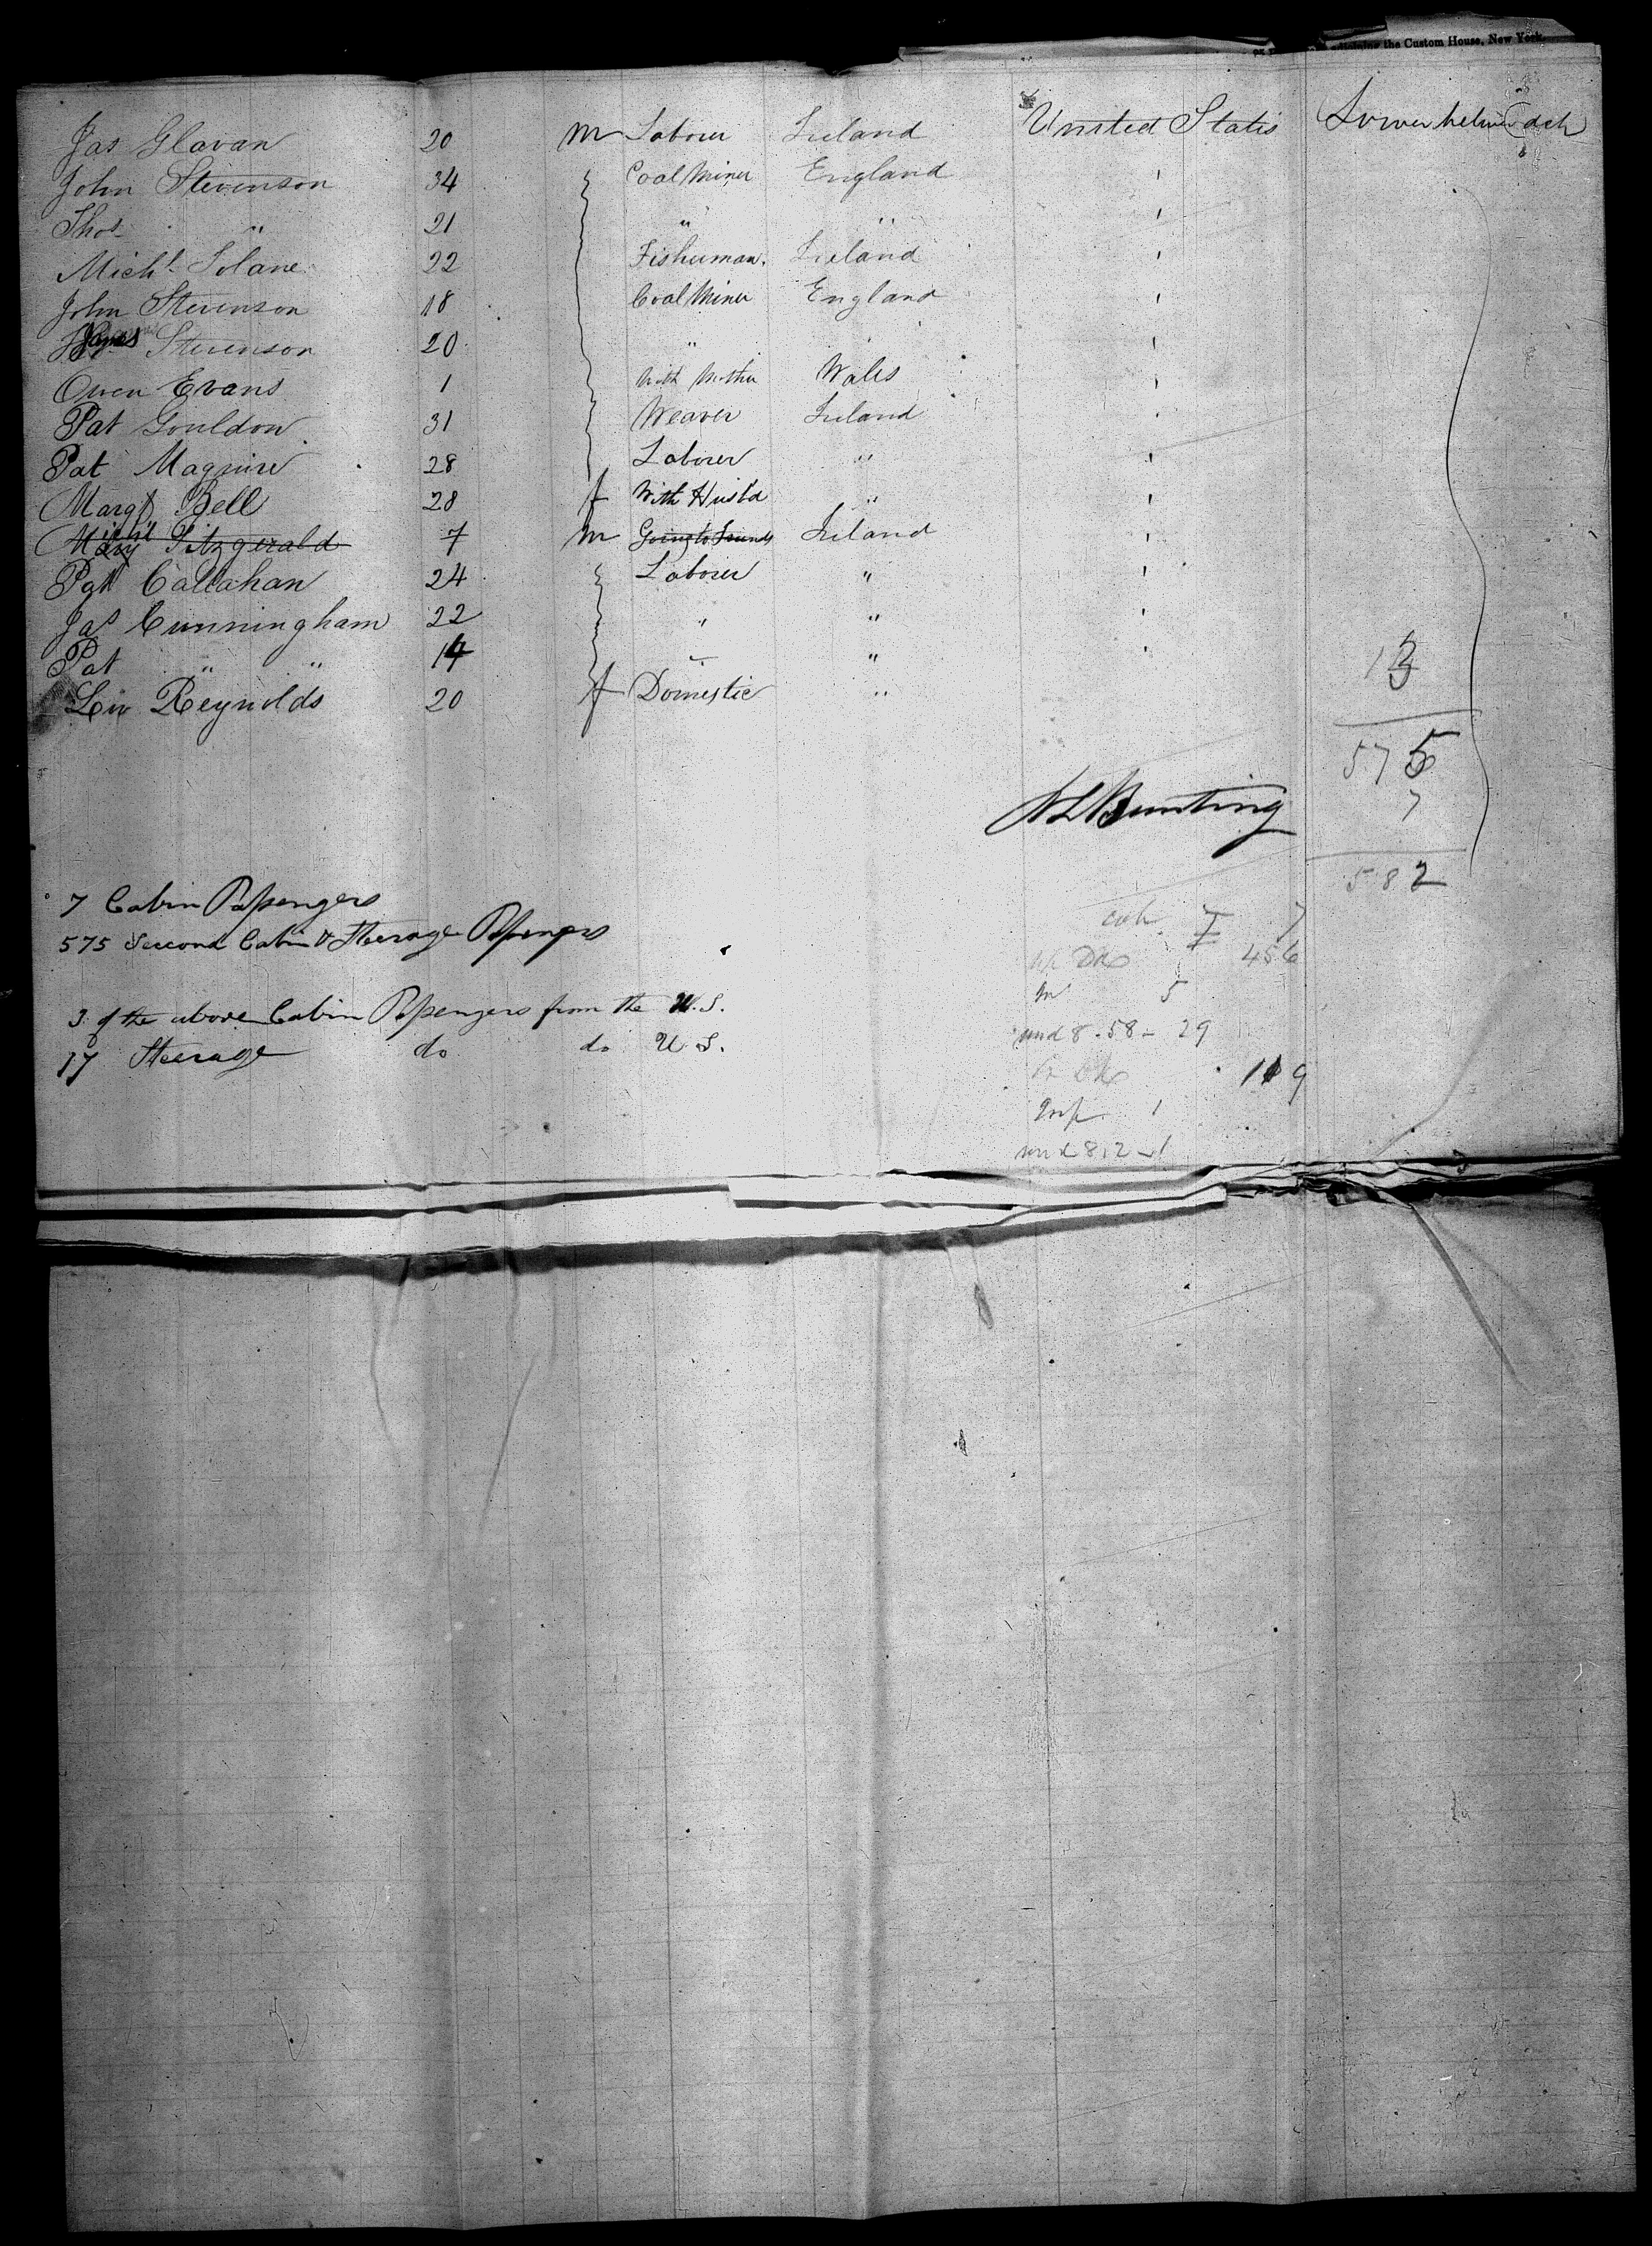 adjoining the Custom House, New York.
Jas Glavan 20 m Laborer Ireland United States Lower between deck
John Stevenson 34 Coal Miner England "
Thos " 21 " " "
Michl. Solane 22 Fisherman. Ireland "
John Stevenson 18 Coal Miner England "
James Stevenson 20 " "
Owen Evans 1 With Mother Wales "
Pat Gouldon 31 Weaver Ireland "
Pat Maguire 28 Laborer " "
Margt Bell 28 f With Husbd " "
Michl Fitzgerald 7 m Going to Friends Ireland "
Pat Callahan 24 Laborer " "
Jas Cunningham 22 " " "
Pat " " 14 " " "
Liv Reynolds 20 f Domestic "
13
575
7
582
Bunting
7 Cabin Passengers
575 Second Cabin & Steerage Passengers
3 of the above Cabin Passengers from the U.S.
17 Steerage do do U.S.
7 7
456
m 5
und 8 - 58 - 29
119
Inf. 1
und 8 . 2 - 1